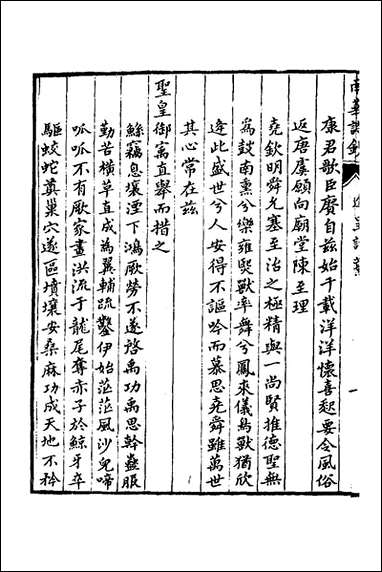 康君歌臣賡自茲始千載洋洋懷喜起要令風俗
返唐虞願向廟堂陳至理
堯欽明舜允塞至治之極精與一尚賢推德聖無
為鼓南熏兮樂雍熙獸率舞兮鳳來儀鳥獸猶欣
逢此盛世兮人安得不謳吟而慕思堯舜雖萬世
其心常在茲
聖皇御寓直舉而措之
鯀竊息壤湮下鴻厥勞不遂啓禹功禹思幹蠱服
勤苦橫草直成為翼輔疏鑿伊始茫茫風沙兒啼
呱呱不有厥家畫洪流于龍尾奪赤子於鯨牙卒
驅蛟蛇奠巢穴遂區墳壤安桑麻功成天地不矜